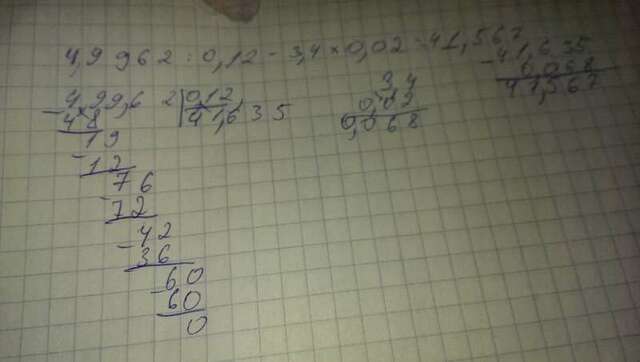 4,9962 : 0,12 - 3,4 × 0,02 = 41,567
- 41,635
0,068
41,567
- 499,6 2 | 0,12
48 41,635
19
- 12
76
- 72
42
- 36
60
- 60
0
3,4
0,02
0,068